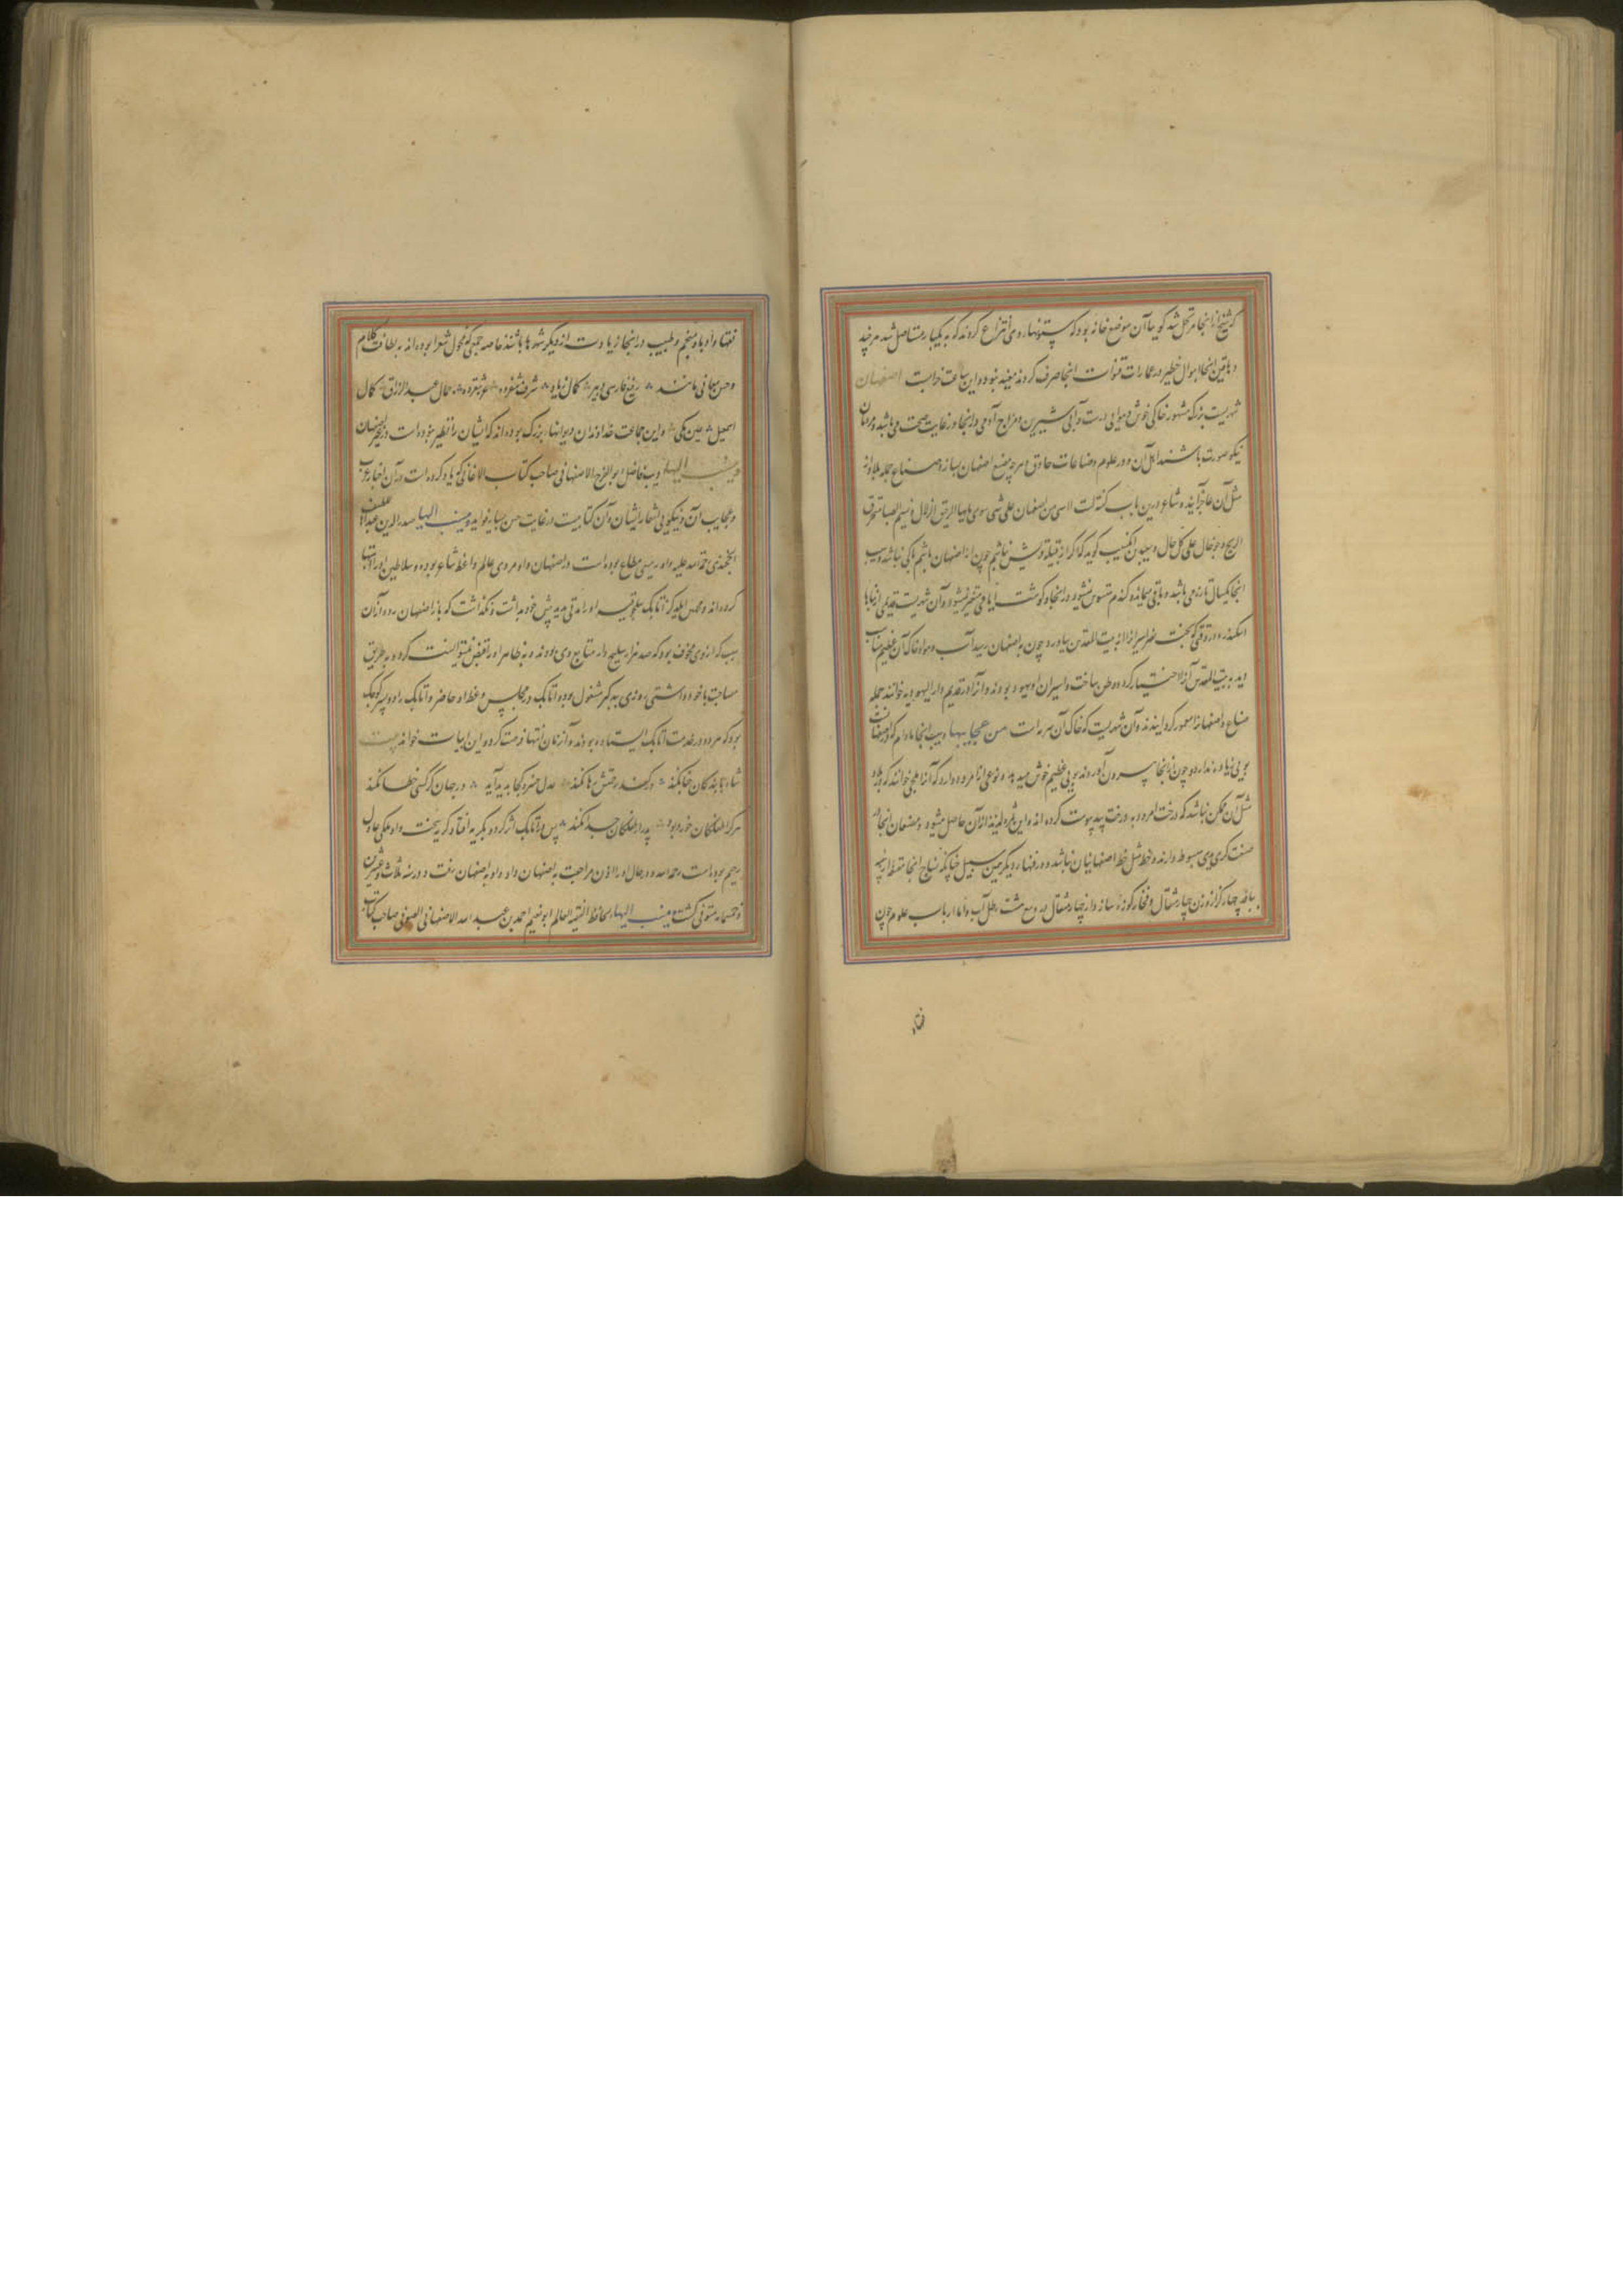 که شیخ از آنجا مرتحل شد گویی با آن موضع خانه بود که ستونهاء وی انتزاع کردند که به یکبار مستاصل شد هر چند
دهاقین آنجا اموال خطیر در عمارات قنوات آنجا صرف کردند مفید نبود و این ساعت خرابست اصفهان
شهریست بزرگ مشهور خاکی خوش و هوایی درست و آبی شیرین و مزاج آدمی در آنجا در غایت صحت می باشد و مردمان
نیکو صورت باشند اهل آن و در علوم و صناعات حاذق هر چه صنع اصفهان بسازد صناع جمله بلاد از
مثل آن عاجز آیند و شاعر درین باب گفته است لست آسی من اصفهان علی شی سوی مایها الرحیق الزلال و نسیم الصبا و منخرق
الریح و جو خال علی کل حال و سعید بن المسیب گوید که اگر از قبیله قریش نباشم چون از اصفهان باشم باکی نباشد و سیب
آنجا یکسال تازه می باشد و باقی می ماند و گندم مسوس نشود در آنجا و گوشت ایامی متغیر نشود و آن شهریست قدیمی از بناها
اسکندر و در وقتی که بخت نصر اسیران از بیت المقدس بیاورد چون به اصفهان رسید آب و هوا و خاک آن عظیم مناسب
دید به بیت المقدس آنرا اختیار کرد و وطن ساخت و اسیران او یهود بودند و آنرا در قدیم دار الیهودیه خوانند جمله
ضیاع و اصفهانرا معمور گردانیدند و آن شهریست که خاک آن سرمه است من عجایبها سیب آنجا مادام که در اصفهانست
بویی زیاده ندارد و چون از آنجا بیرون آوردند بویی عظیم خوش میدهد و نوعی از امرود دارد که آنرا ملجی خوانند که در بلاد
مثل آن ممکن نباشد که درخت امرود به درخت بید پیوست کرده اند و این ثمره لذیذ از آن حاصل میشود و صنعان آنجا در
صنعت کری یدی مبسوط دارند و خط مثل خط اصفهانیان نباشد و در فنهاء دیگر همین سبیل چنانکه نساج آنجا مقنعه از پنبه
بباف چهار گز از وزن چهار مثقال و فخار کوزه سازد از چهار مثقال به وسع هشت رطل آب و اما ارباب علوم چون
فقها
فقها و ادبا و منجم و طبیب در آنجا زیادت از دیگر شهرها باشند خاصه جمعی که فحول شعرا بوده اند به لطافت کلام
و حسن معانی مانند رفیع فارسی دبیر کمال زیاد شرف شفروه عز شفروه جمال عبد الرزاق کمال
اسمعیل یمین مکی و این جماعت خداوندان دیوانهاء بزرگ بوده اند که ایشان را نظیر نبوده است در غیر اصفهان
و ینسب الیها ادیب فاضل ابو الفرج الاصفهانی صاحب کتاب الاغانی که یاد کرده است در آن اخبار عرب
و عجایب آن و نیکویی اشعار ایشان و آن کتابیست در غایت حسن بسیار فواید و ینسب الیها صدر الدین عبد اللطیف
الخجندی رحمة الله علیه و او رییسی مطاع بوده است در اصفهان و او مردی عالم واعظ شاعر بوده و سلاطین او را
کرده اند و محمد بن ایلدکز اتابک سلجوقیه او را مدتی مدید پیش خود بداشت و نگذاشت که باز اصفهان رود و از آن
سبب که از وی مخوف بود که صد هزار سلیحدار متابع وی بودند و به ظاهر او را تعرض نتوانست کرد و به طریق
مصاحبت با خود داشتی روزی به تذکیر مشغول بود و اتابک در مجلس وعظ او حاضر و اتابک را دو پسر کوچک
بود که مرده و در خدمت اتابک ایستاده بودند و آن زمان انتهاز فرصت کرد و این ابیات خواند بیت
شاه با بندگان جفا نکند در کمند رهش رها نکند عدل خسرو کجا پدید آید در جهان گرگ کس خطا نکند
هر که از طفلگان خود بود پدر از طفلکان جدا نکند پس در اتابک اثر کرد و بگریه افتاد و گریست و او ملکی عادل
رحیم بوده است رحمه الله و در حال او را اذن مراجعت به اصفهان داد و او به اصفهان رفت و در سنه ثلاث و عشرین
و خمسمایه متوفی گشت و ینسب الیها الحافظ الفقیه العالم ابو نعیم احمد بن عبد الله الاصفهانی الصوفی صاحب کتاب